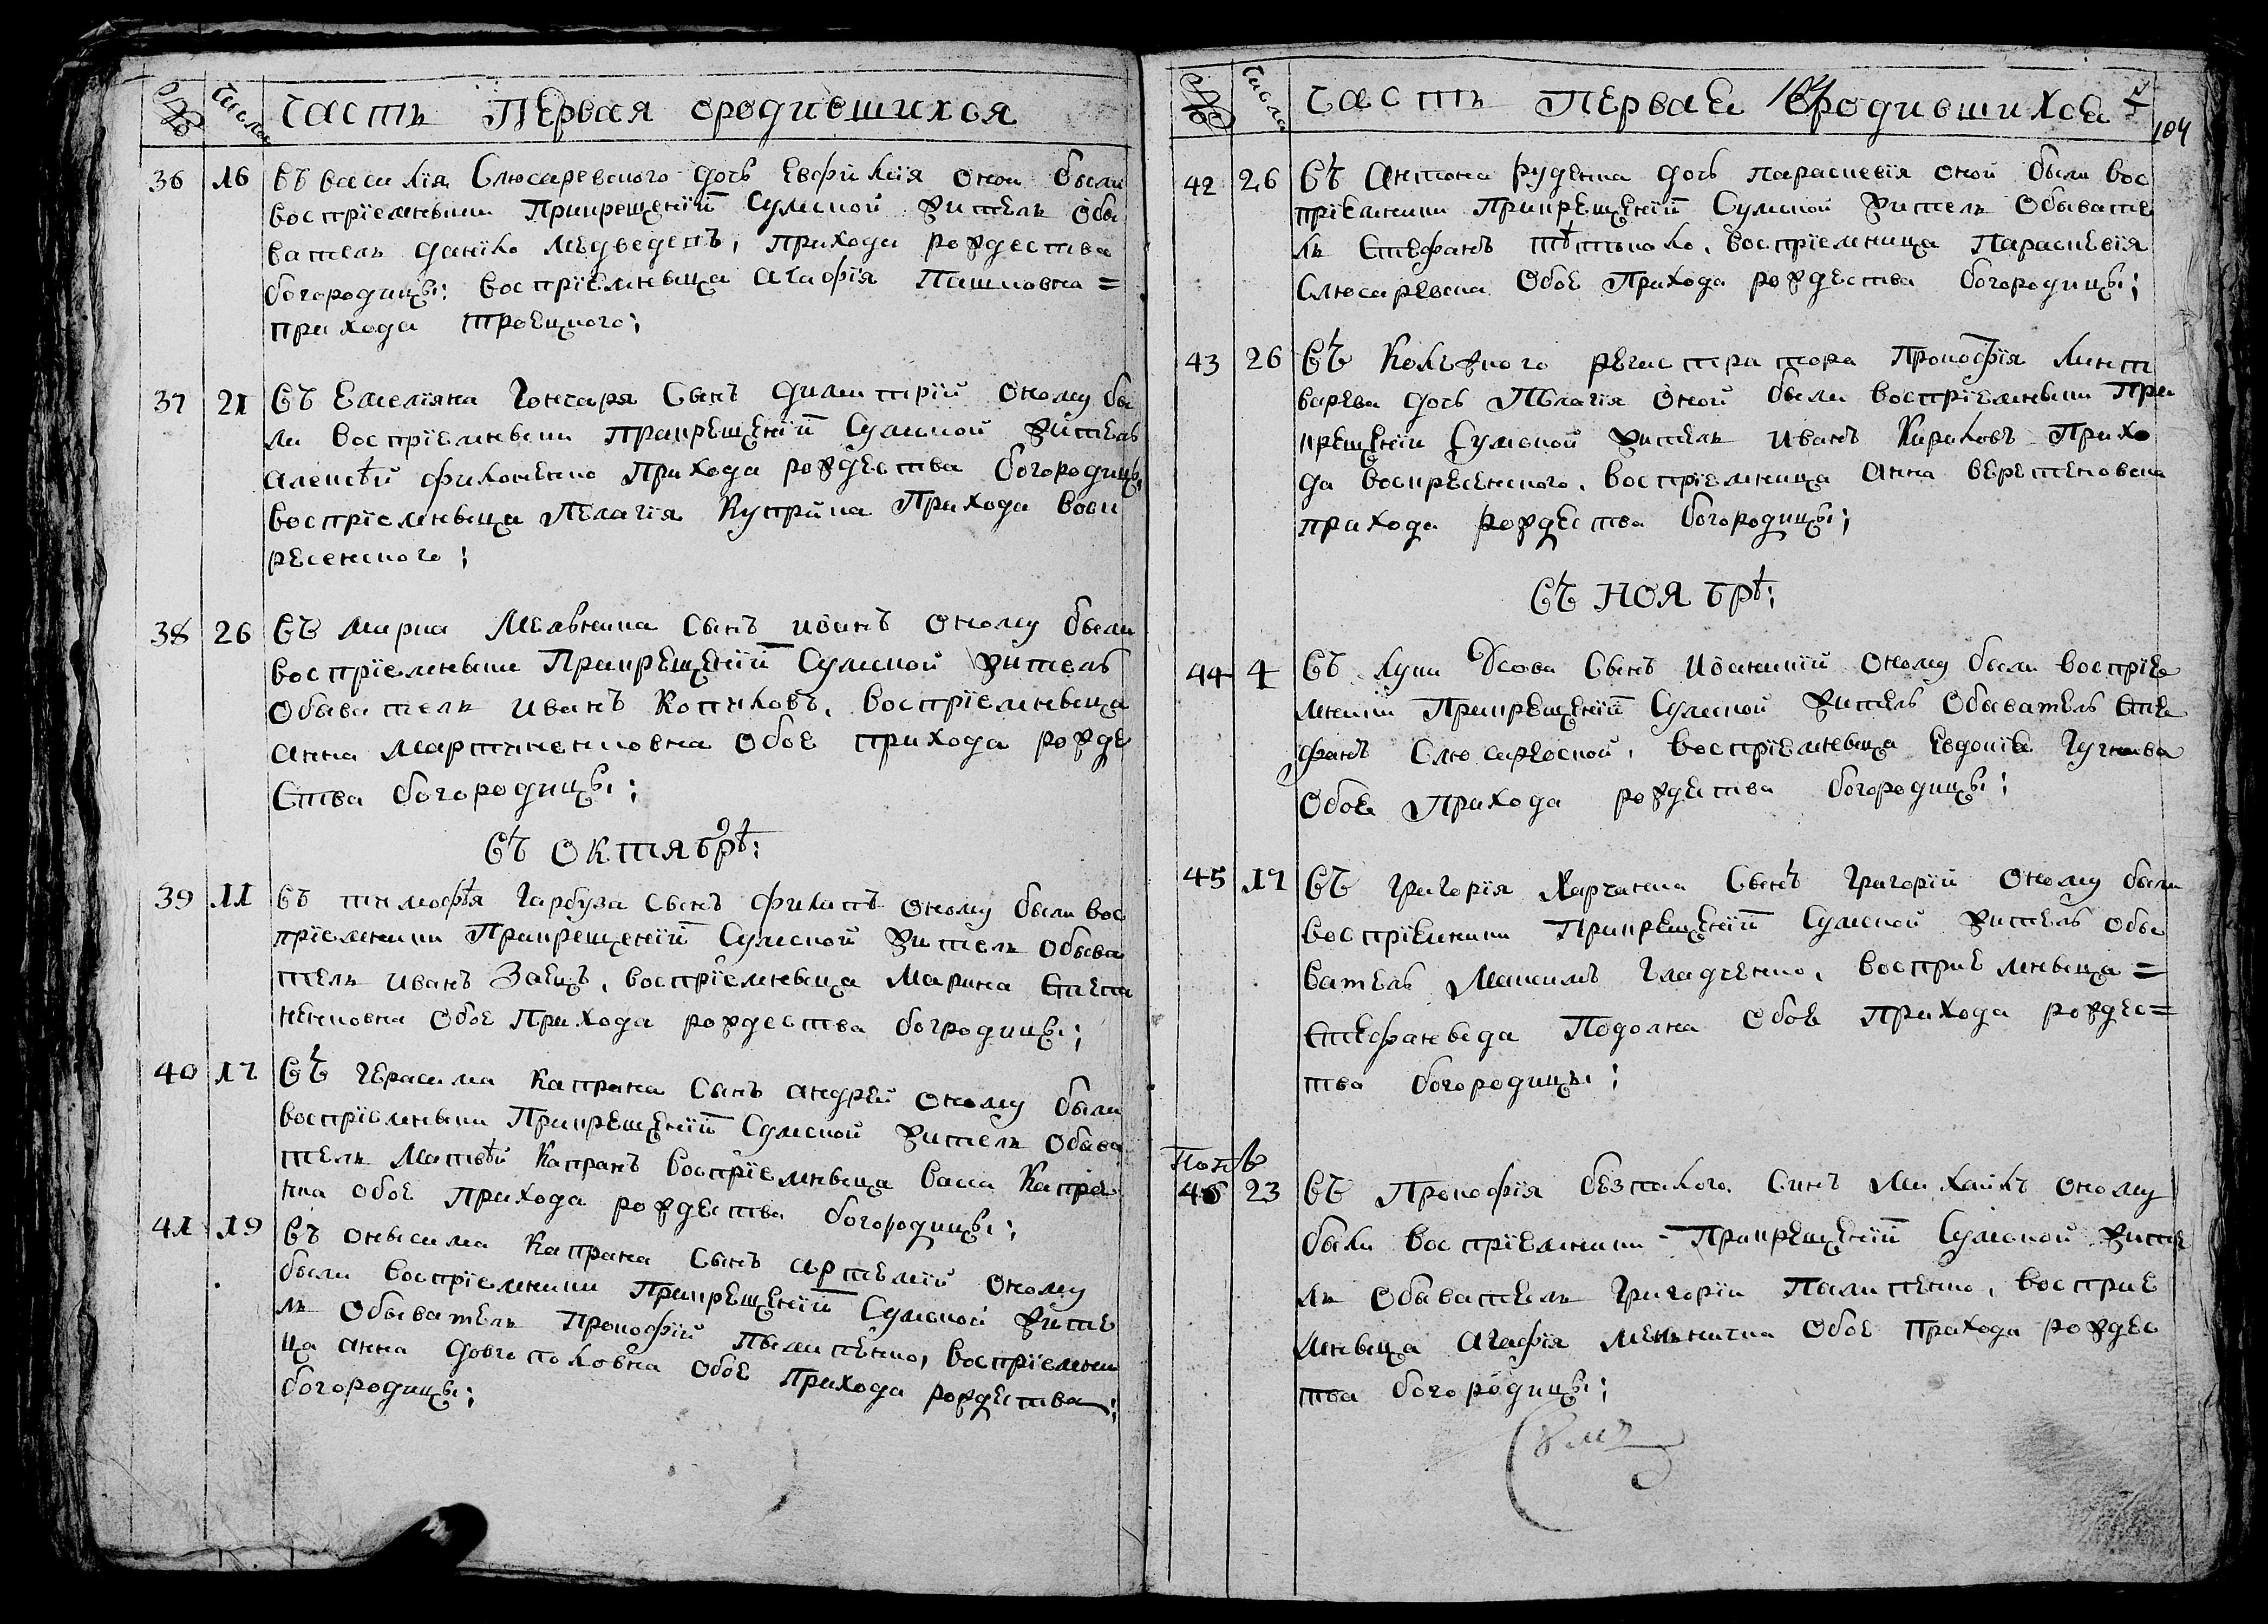 № Числа Часть Первая ородившихся
36 16 Въ василия Слюсаревского дочь Евфимия оной были
восприемныки При крещении Сумской житель обы
ватель данило медведевъ, прихода рождества
богородицы: восприемныца агафия Пашковна =
прихода троецкого;
37 21 Въ Емелияна Гончаря Сынъ димитрий оному бы
ли восприемныки при крещении Сумской житель
алексѣй филоненко Прихода рождества богородицы,
восприемныца Пелагия Прихода воск
ресенского;
38 26 Въ марка Мелныка Сынъ иванъ оному были
восприемныки При крещении Сумской житель
обыватель иванъ Котыковъ, восприемныца
анна мартыненковна обое прихода рожде
ства богородицы;
Въ октябрѣ:
39 11 Въ тимофѣя Гарбуза Сынъ филипъ оному были вос
приемники При крещении Сумской житель обыва
тель иванъ Заецъ, восприемныца Марина
обое Прихода рождества богродицы;
40 17 Въ герасима капрана Сынъ андрей оному были
восприемныки При крещении Сумской житель обыва
тель Матвѣй Капранъ восприемныца васса Капра
нка обое прихода рождества богородицы;
41 19 Въ онысима капрана Сынъ артемий оному
были восприемники При крещении Сумской жите
ль обыватель Прокофий Пылыпенко, восприемни
ца анна довгополовна обое Прихода рождества;
богородицы;
№ Числа Часть Первая ородившихся
104
42 26 Въ Антона руденка дочь параскевия оной были вос
приемники При крещении Сумской житель обывате
ль Стефанъ, восприемница Параскевия
Слюсаревска обое Прихода рождества богородицы;
43 26 Въ Колежного регистратора Прокофия Линт
варева дочь Пелагия оной были восприемныки При
крещении Сумской житель иванъ Кириловъ Прихо
да воскресенского, восприемница анна веретеновска
прихода рождества богородицы;
Въ ноябрѣ:
44 4 Въ луки Сынъ Иоаникий оному были восприе
мники При крещении Сумской житель обыватель Сте
фанъ Слюсаревской, восприемныца Евдокия
обое Прихода рождества богородицы;
45 17 Въ григория Харченка Сынъ григорий оному были
восприемники При крещении Сумской житель обы
ватель Максимъ Гладченко, восприемныца =
Стефаныда Подолка обое прихода рождес=
тва богородицы;
46 23 Въ Прокофия безпалого Синъ Михаилъ оному
были восприемники При крещении Сумской жите
ль обыватель григории Пылипенко, восприе
мныца агафия Мелничка обое прихода рождес
тва богородицы;